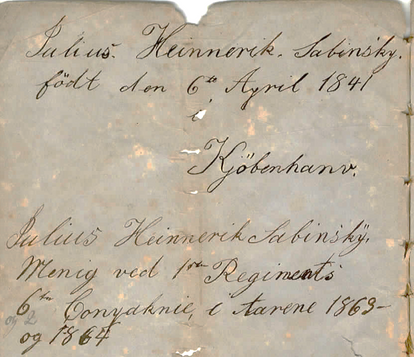 Julius. Heinnerik. Sabinsky.
födt den 6te Ayril 1841
i
Kjöbenhanv.
Julius Heinnerik Sabinskÿ.
Menig ved 1ste Regiments
6te Conyaknie, i aarene 1863-
og 2
og 1864